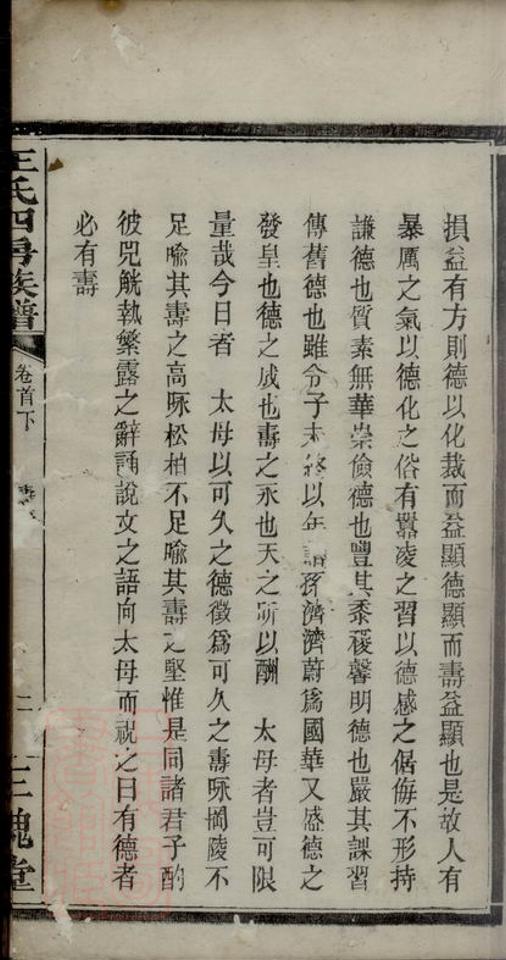 損益有方則德以化裁而益顯德顯而壽益顯也是故人有
暴厲之氣以德化之俗有囂凌之習以德感之倨侮不形持
謙德也質素無華崇儉德也豐其黍稷馨明德也嚴其課習
傳舊德也雖令子未終以年諸孫濟濟蔚為國華又盛德之
發皇也德之成也壽之永也天之所以酬　太母者豈可限
量哉今日者　太母以可久之德徵為可久之壽咏岡陵不
足喻其壽之高咏松柏不足喻其壽之堅惟是同諸君子酌
彼兕觥執繁露之辭誦說文之語向太母而祝之曰有德者
必有壽
王氏四房族譜
卷首下
二
三槐堂